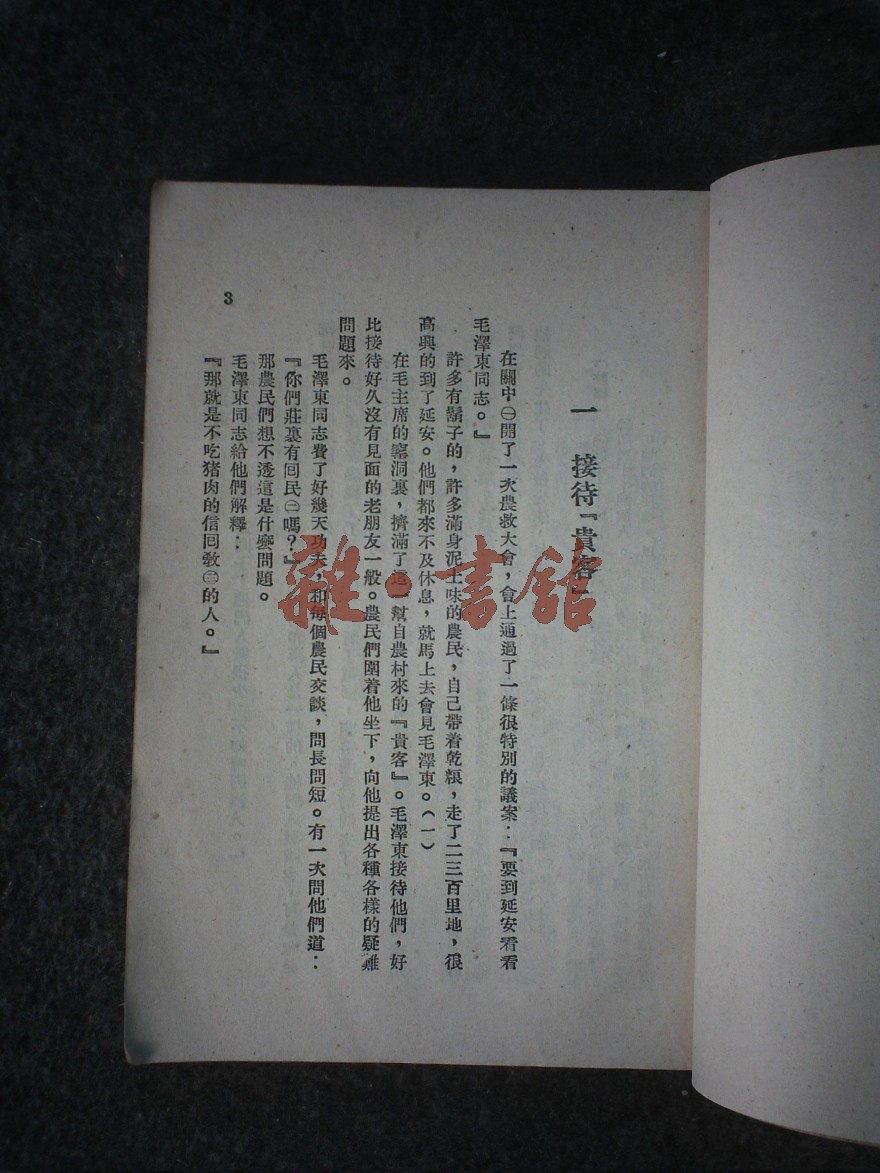 一　接待『貴客』
在關中㊀開了一次農救大會，會上通過了一條很特別的議案：『要到延安看看
毛澤東同志。』
許多有鬍子的，許多滿身泥土味的農民，自己帶着乾糧，走了二三百里地，很
高興的到了延安。他們都來不及休息，就馬上去會見毛澤東。（一）
在毛主席的窰洞裏，擠滿了這一幫自農村來的『貴客』。毛澤東接待他們，好
比接待好久沒有見面的老朋友一般。農民們圍着他坐下，向他提出各種各樣的疑難
問題來。
毛澤東同志費了好幾天功夫，和每個農民交談，問長問短。有一次問他們道：
『你們莊裏有回民㊁嗎？』
那農民們想不透這是什麽問題。
毛澤東同志給他們解釋：
『那就是不吃猪肉的信回敎㊂的人。』
3
雜·書舘